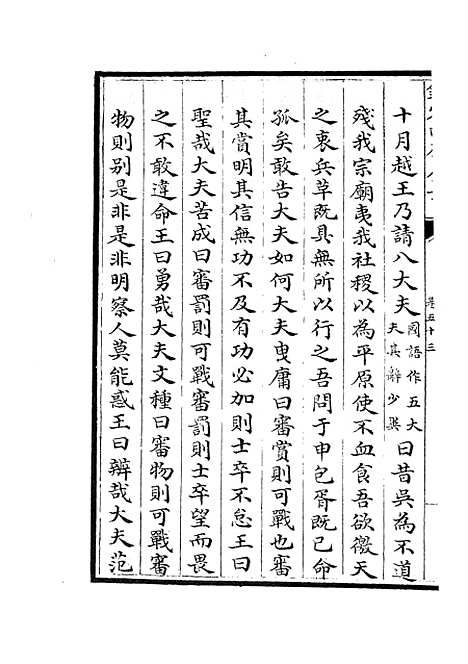 十月越王乃請八大夫國語作五大夫其辭少異曰昔吳為不道
殘我宗廟夷我社稷以為平原使不血食吾欲徼天
之衷兵革既具無所以行之吾問于申包胥既已命
孤矣敢告大夫如何大夫曳庸曰審賞則可戰也審
其賞明其信無功不及有功必加則士卒不怠王曰
聖哉大夫苦成曰審罰則可戰審罰則士卒望而畏
之不敢違命王曰勇哉大夫文種曰審物則可戰審
物則別是非是非明察人莫能惑王曰辨哉大夫范